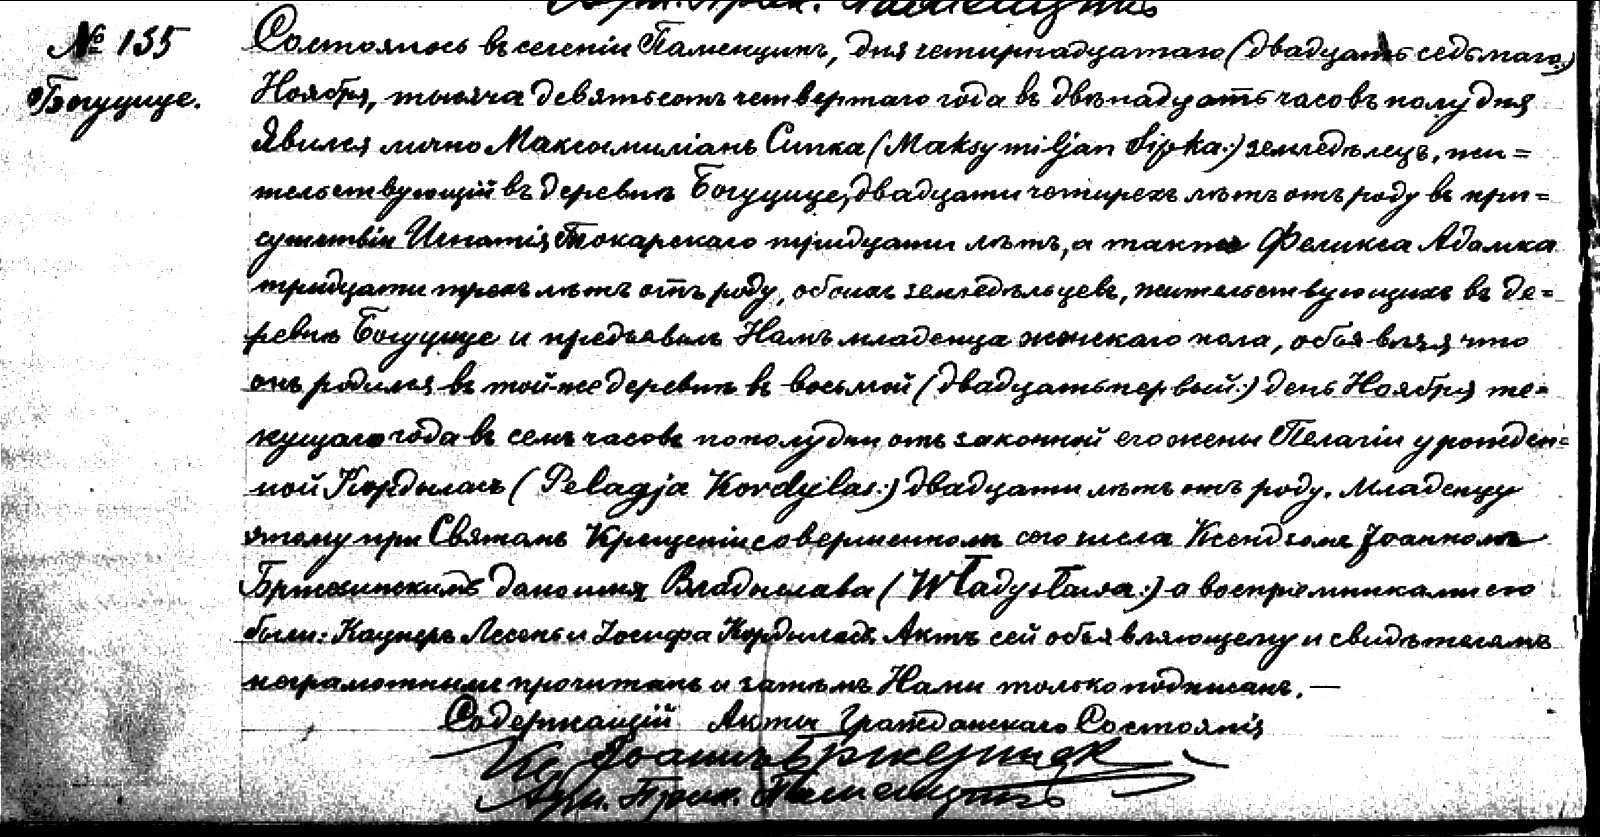 № 155
Богуцице.
Состоялось въ селеніи Паменцинъ, дня четырнадцатаго (двадцать седьмаго:)
Ноября, тысяча девятьсотъ четвертаго года въ двѣнадцать часовъ полудня
Явился лично Максымиліанъ Сипка (Maksymiljan Sipka:) земледѣлецъ, жи=
тельствующій въ деревнѣ Богуцице, двадцати четырехъ лѣтъ отъ роду въ при=
сутствіи Игнатія Токарскаго тридцати лѣтъ, а также Феликса Адамка
тридцати трехъ лѣтъ отъ роду, обоихъ земледѣльцевъ, жительствующихъ въ де=
ревнѣ Богуцице и предъявилъ Намъ младенца женскаго пола, объявляя что
онъ родился въ той-же деревнѣ въ восьмой (двадцать первый:) день Ноября те=
кущаго года въ семь часовъ по полудни отъ законной его жены Пелагіи урожден=
ной Кордыласъ (Pelagja Kordylas:) двадцати лѣтъ отъ роду. Младенцу
этому при Святомъ Крещеніи совершенномъ сего числа Ксендзомъ Іоанномъ
дано имя Владыслава (Władysława:) а воспріемниками его
были: Кацперъ Лесень и Іосифа Кордыласъ. Актъ сей объявляющему и свидѣтелямъ
неграмотнымъ прочитанъ и затѣмъ Нами только подписанъ. —
Содержащій Акты Гражданскаго Состоянія
Кс. Іоаннъ
Адм. Прих.